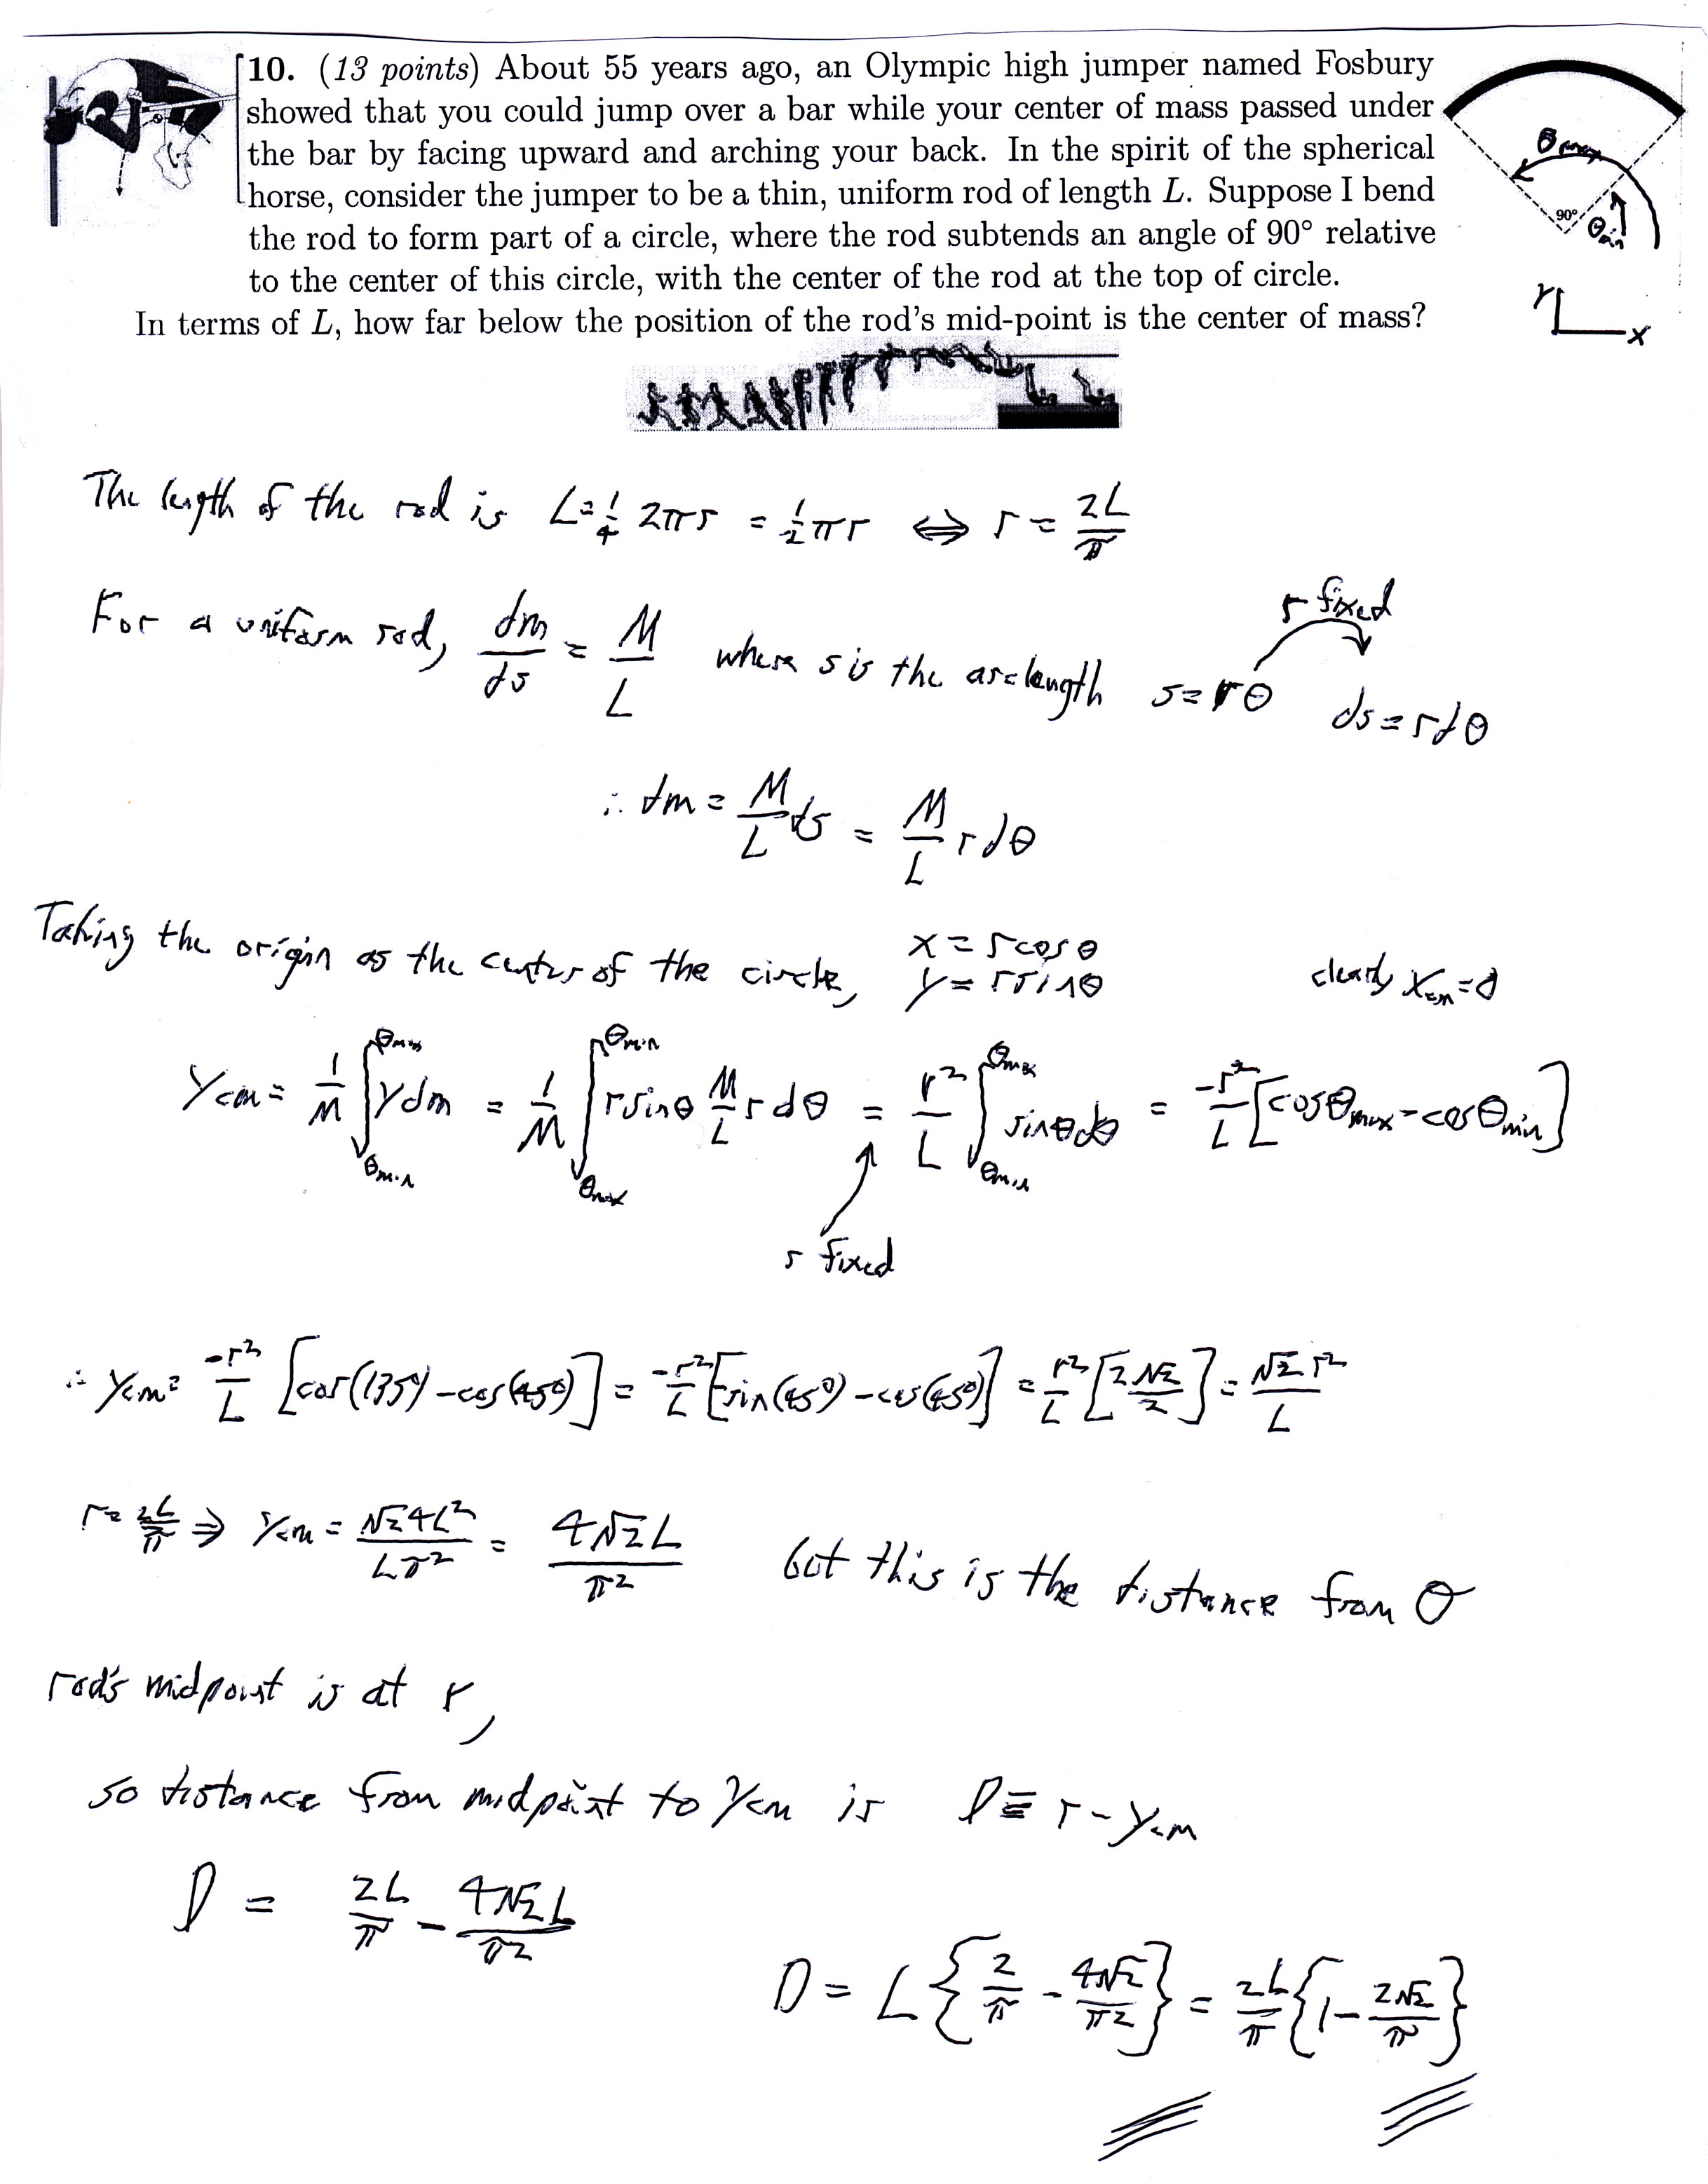 10. (13 points) About 55 years ago, an Olympic high jumper named Fosbury
showed that you could jump over a bar while your center of mass passed under
the bar by facing upward and arching your back. In the spirit of the spherical
horse, consider the jumper to be a thin, uniform rod of length L. Suppose I bend
the rod to form part of a circle, where the rod subtends an angle of 90° relative
to the center of this circle, with the center of the rod at the top of circle.
In terms of L, how far below the position of the rod's mid-point is the center of mass?
θmax
90°
θmin
y
x
The length of the rod is L = 1/4 2πr = 1/2 πr ⇔ r = 2L/π
r fixed
For a uniform rod, dm/ds = M/L where s is the arclength s = rθ ds = rdθ
∴ dm = M/L ds = M/L r dθ
Taking the origin as the center of the circle, x = r cos θ
y = r sin θ
clearly Xcm = 0
Ycm = 1/M ∫θmin^θmax Y dm = 1/M ∫θmax^θmin r sin θ M/L r dθ = r²/L ∫θmin^θmax sin θ dθ = -r²/L [cos θmax - cos θmin]
r fixed
∴ Ycm = -r²/L [cos(135°) - cos(45°)] = -r²/L [-sin(45°) - cos(45°)] = r²/L [2 √2/2] = √2 r²/L
r = 2L/π ⇒ Ycm = √2 4L²/Lπ² = 4√2 L/π² but this is the distance from O
rod's midpoint is at r,
so distance from midpoint to Ycm is D ≡ r - Ycm
D = 2L/π - 4√2 L/π²
D = L {2/π - 4√2/π²} = 2L/π {1 - 2√2/π}